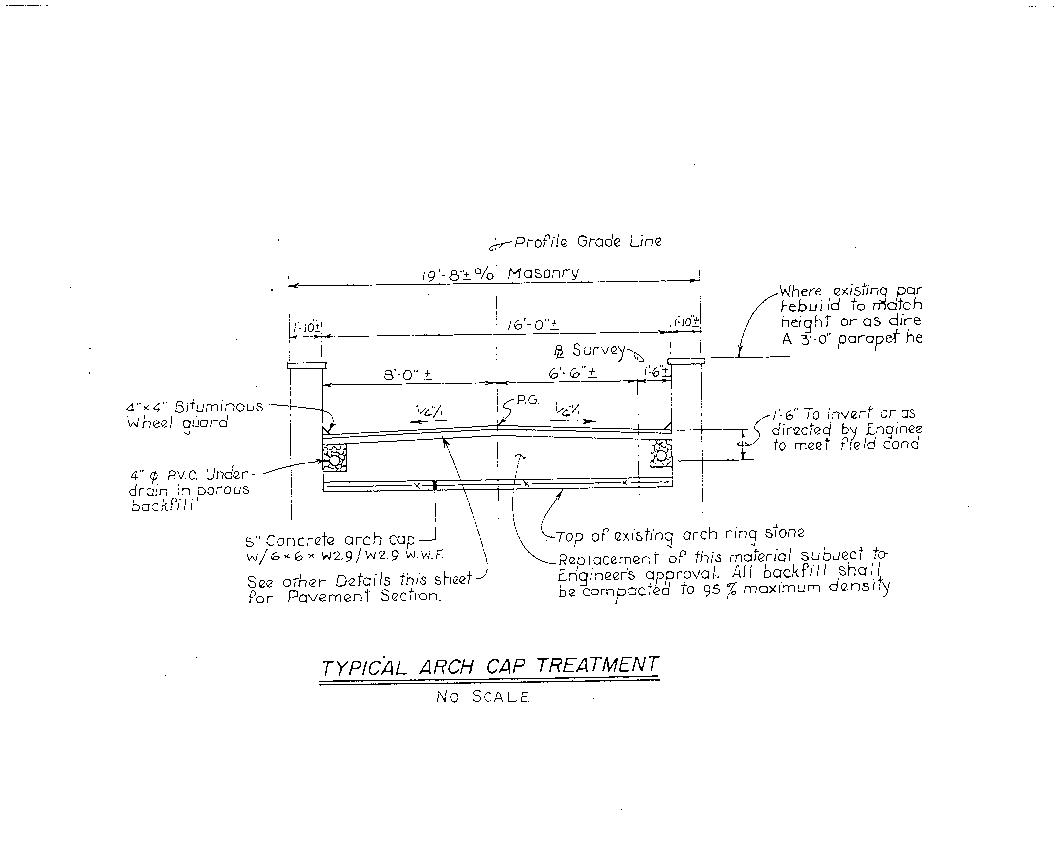 Profile Grade Line
19'-8"± o/o Masonry
1'-10"±
16'-0"±
1'-10"±
Where existing par
rebuild to match
height or as dire
A 3'-0" parapet he
℞ Survey
8'-0"±
6'-6"±
1'-6"±
P.G.
4"x4" Bituminous
wheel guard
1'-6" To invert or as
directed by Enginee
to meet field cond
4" ϕ P.V.C. Under-
drain in porous
backfill
5" Concrete arch cap
w/6×6× W2.9/W2.9 W.W.F.
See other Details this sheet
for Pavement Section.
Top of existing arch ring stone
Replacement of this material subject to
Engineer's approval. All backfill shall
be compacted to 95% maximum density
TYPICAL ARCH CAP TREATMENT
NO SCALE